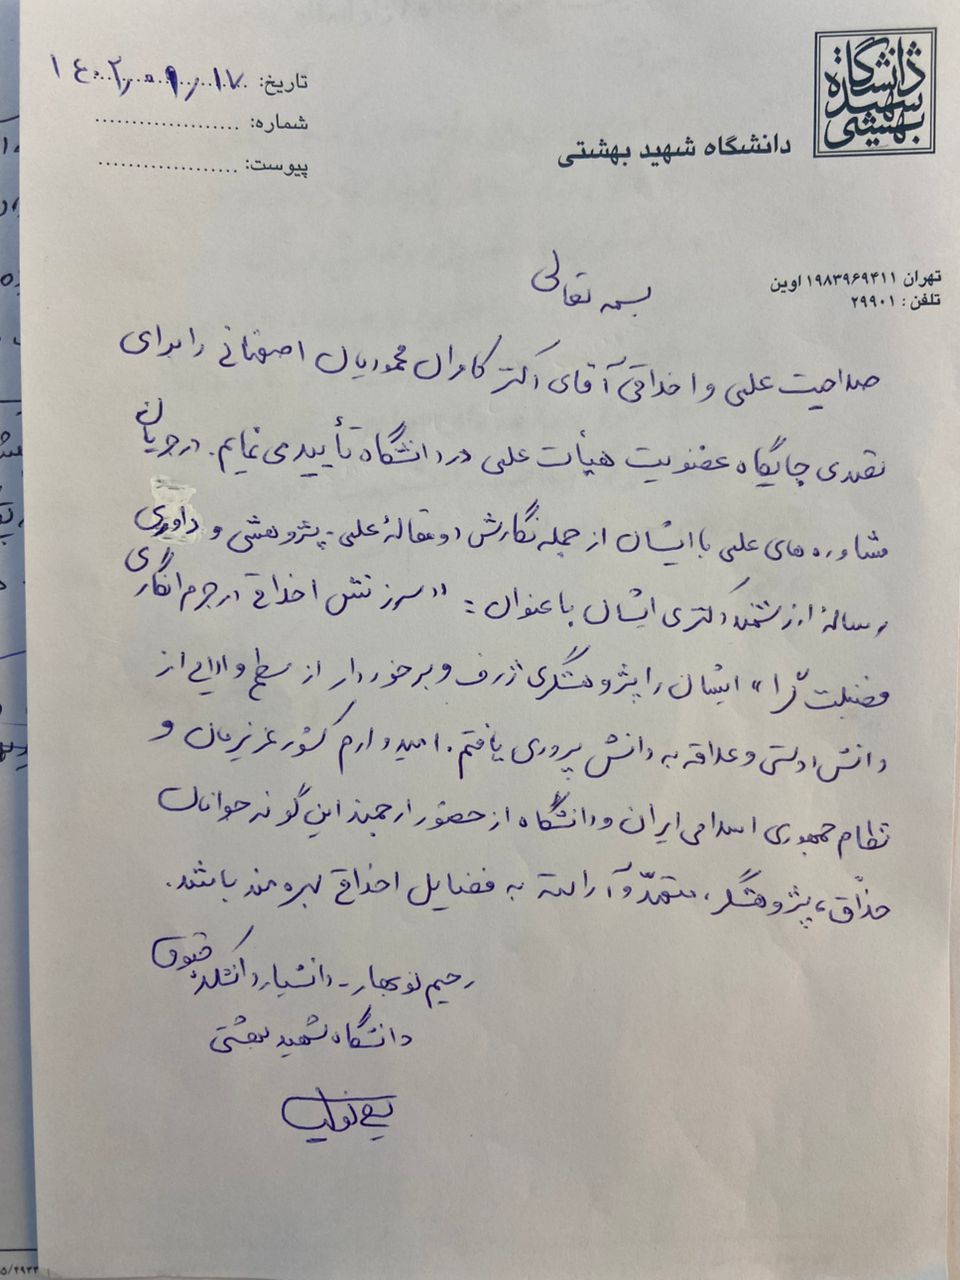 دانشگاه شهید بهشتی
دانشگاه شهید بهشتی
تاریخ: ۱۴۰۲،۰۹،۱۷
شماره: ....................
پیوست: ....................
تهران ۱۹۸۳۹۶۹۴۱۱ اوین
تلفن: ۲۹۹۰۱
بسمه تعالی
صلاحیت علمی و اخلاقی آقای دکتر کامران محمودیان اصفهانی را برای
تصدی جایگاه عضویت هیأت علمی در دانشگاه تأیید می نمایم. در جریان
مشاوره های علمی با ایشان از جمله نگارش دو مقالهٔ علمی - پژوهشی و داوری
رسالهٔ ارزشمند دکتری ایشان با عنوان: «سرزنش اخلاقی در جرم انگاری
فضیلت گرا» ایشان را پژوهشگری ژرف و برخوردار از سطح والایی از
دانش دوستی و علاقه به دانش پروری یافتم. امیدوارم کشور عزیزمان و
نظام جمهوری اسلامی ایران و دانشگاه از حضور ارجمند این گونه جوانان
حذّاق، پژوهشگر، متعهّد و آراسته به فضایل اخلاقی بهره مند باشند.
رحیم نوبهار - دانشیار دانشکدهٔ حقوق
دانشگاه شهید بهشتی